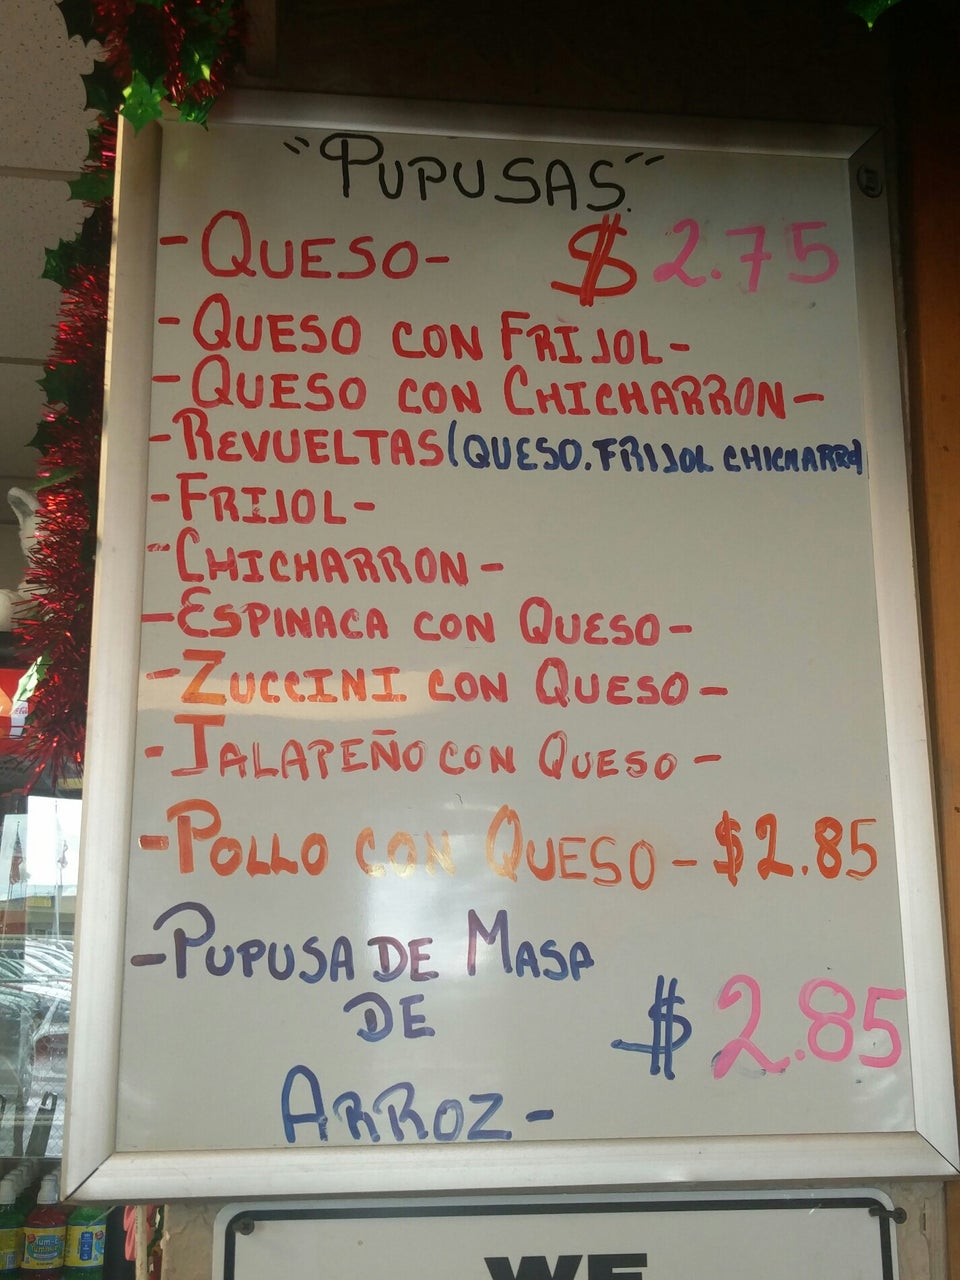 "PUPUSAS"
-QUESO- $2.75
-QUESO CON FRIJOL-
-QUESO CON CHICHARRON-
-REVUELTAS (QUESO.FRIJOL CHICHARRO
-FRIJOL-
-CHICHARRON-
-ESPINACA CON QUESO-
-ZUCCINI CON QUESO-
-JALAPEÑO CON QUESO-
-POLLO CON QUESO-$2.85
-PUPUSA DE MASA
DE $2.85
ARROZ-
WE